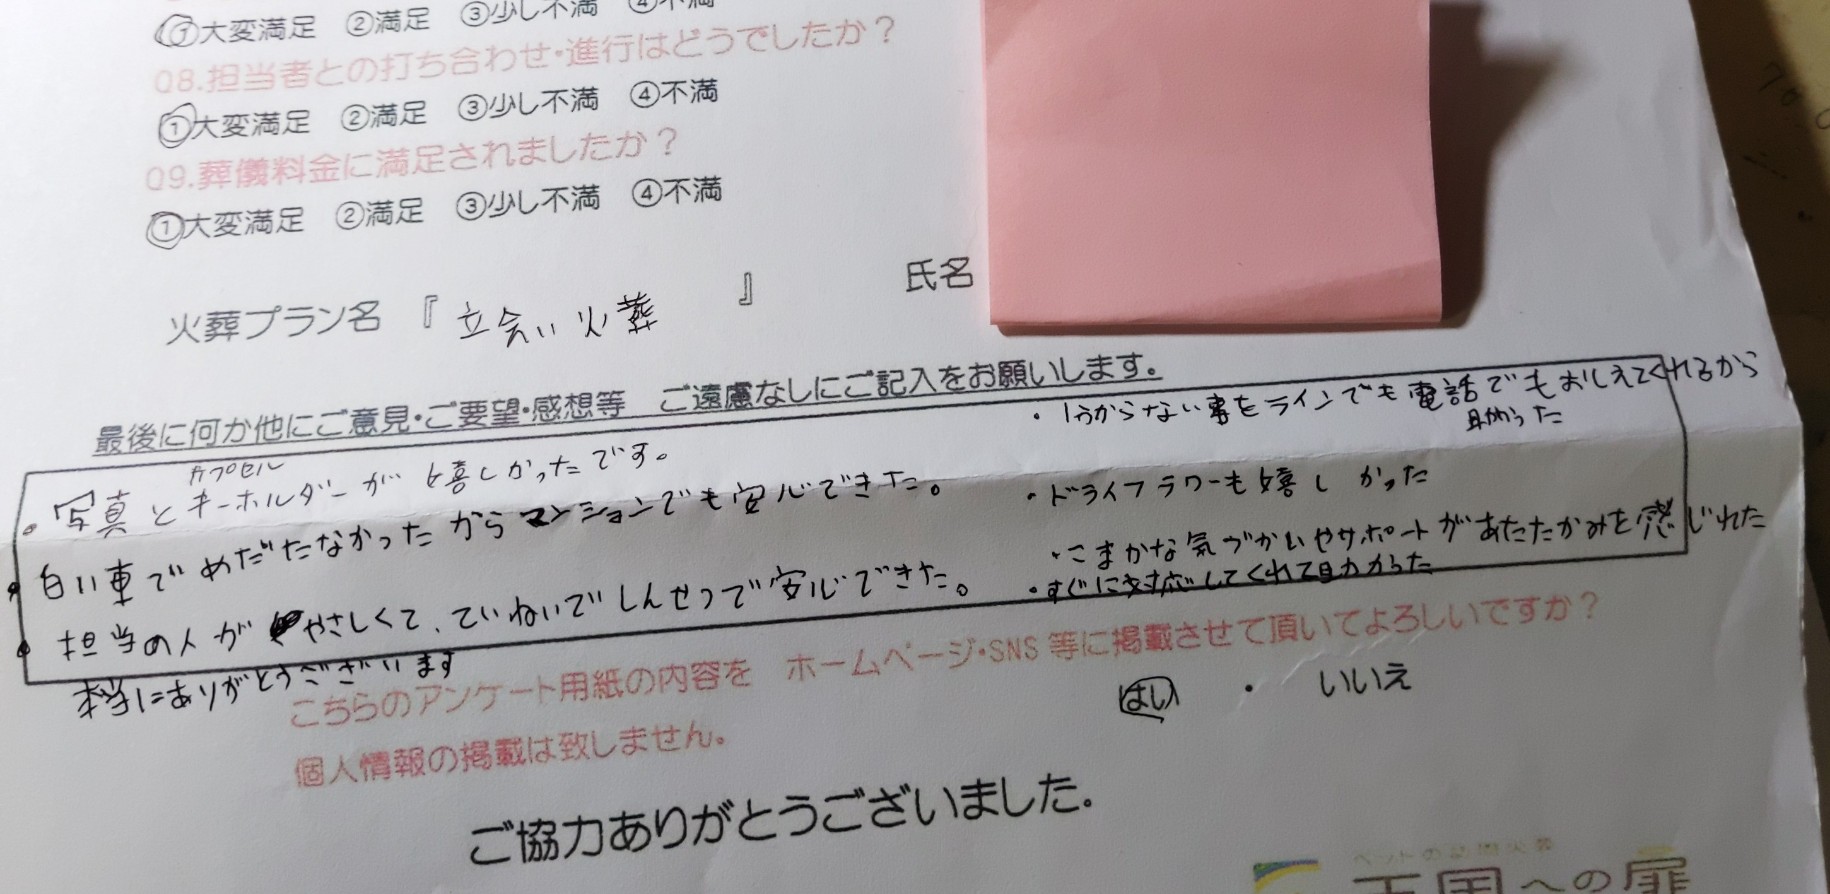 ①大変満足 ②満足 ③少し不満 ④不満
Q8.担当者との打ち合わせ・進行はどうでしたか？
①大変満足 ②満足 ③少し不満 ④不満
Q9.葬儀料金に満足されましたか？
①大変満足 ②満足 ③少し不満 ④不満
火葬プラン名 『 立会い火葬 』 氏名
最後に何か他にご意見・ご要望・感想等 ご遠慮なしにご記入をお願いします。
・写真とカプセルキーホルダーが嬉しかったです。
・白い車でめだたなかったからマンションでも安心できた。
・担当の人がやさしくて、ていねいでしんせつで安心できた。
本当にありがとうございます
・分からない事をラインでも電話でもおしえてくれるから
助かった
・ドライフラワーも嬉しかった
・こまかな気づかいやサポートがあたたかみを感じれた
・すぐに対応してくれて助かった
こちらのアンケート用紙の内容を ホームページ・SNS等に掲載させて頂いてよろしいですか？
はい ・ いいえ
個人情報の掲載は致しません。
ご協力ありがとうございました。
ペットの訪問火葬
天国への扉